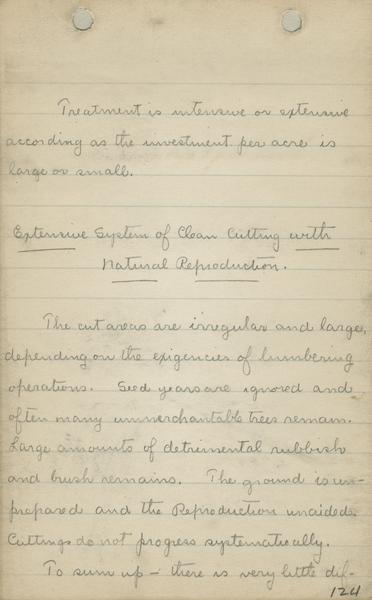 Treatment is intensive or extensive
according as the investment per acre is
large or small.
Extensive System of Clean Cutting with
Natural Reproduction.
The cut areas are irregular and large,
depending on the exigencies of lumbering
operations. Seed years are ignored and
often many unmerchantable trees remain.
Large amounts of detrimental rubbish
and brush remains. The ground is un-
prepared and the Reproduction unaided.
Cuttings do not progress systematically.
To sum up - there is very little dif-
124